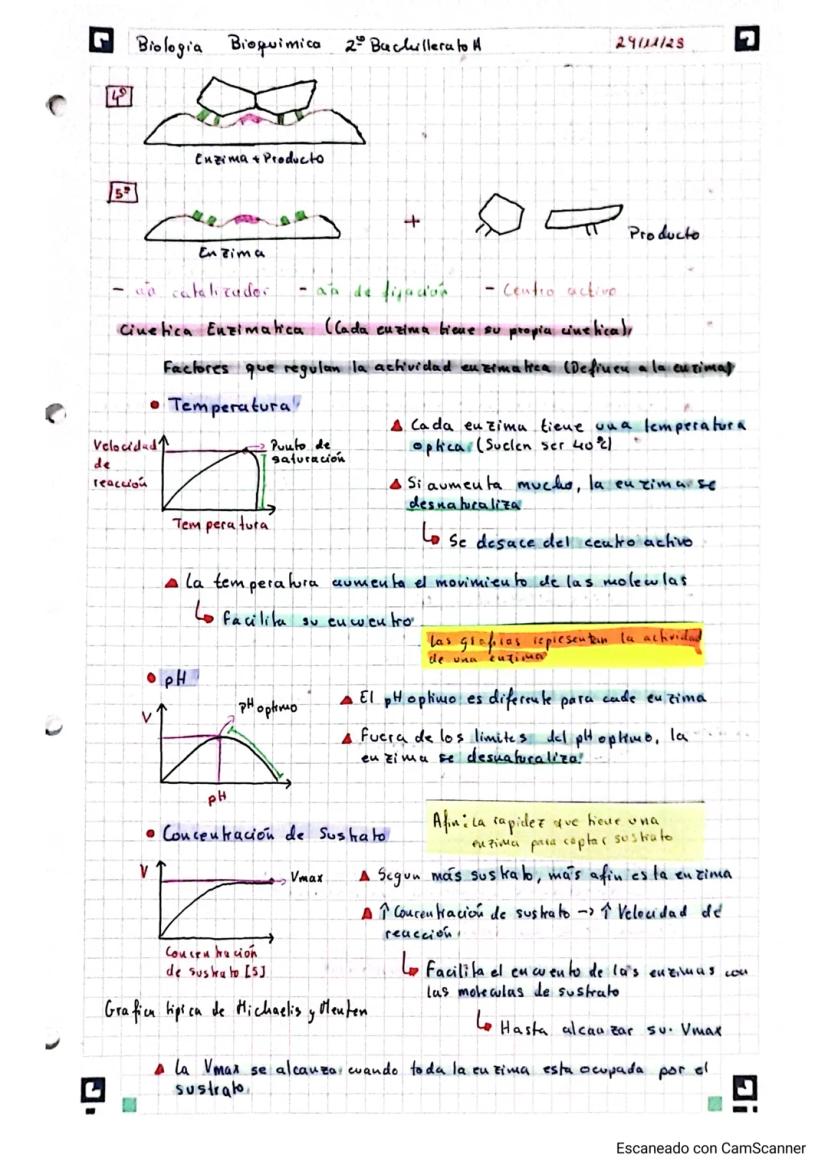 Biología Bioquímica 2º Bachillerato A 29/11/23
4º
Enzima + Producto
5º
+
Producto
Enzima
- aa catalizador - aa de fijación - Centro activo
Cinetica Enzimatica (Cada enzima tiene su propia cinetica)
Factores que regulan la actividad enzimatica (Definen a la enzima)
Temperatura
Velocidad de reacción
Punto de saturación
Temperatura
Cada enzima tiene una temperatura
optica (Suelen ser 40ºC)
Si aumenta mucho, la enzima se
desnaturaliza
Se desace del centro activo
La temperatura aumenta el movimiento de las moleculas
Facilita su encuentro
Las graficas representan la actividad
de una enzima
pH
V
pH optimo
pH
El pH optimo es diferente para cada enzima
Fuera de los limites del pH optimo, la
enzima se desnaturaliza
Afin: La rapidez que tiene una
enzima para captar sustrato
Concentración de Sustrato
V
Vmax
Concentración
de sustrato [S]
Segun más sustrato, más afin es la enzima
↑ Concentración de sustrato -> ↑ Velocidad de
reacción
Facilita el encuento de las enzimas con
las moleculas de sustrato
Hasta alcanzar su Vmax
Grafica tipica de Michaelis y Menten
La Vmax se alcanza cuando toda la enzima esta ocupada por el
sustrato
Escaneado con CamScanner